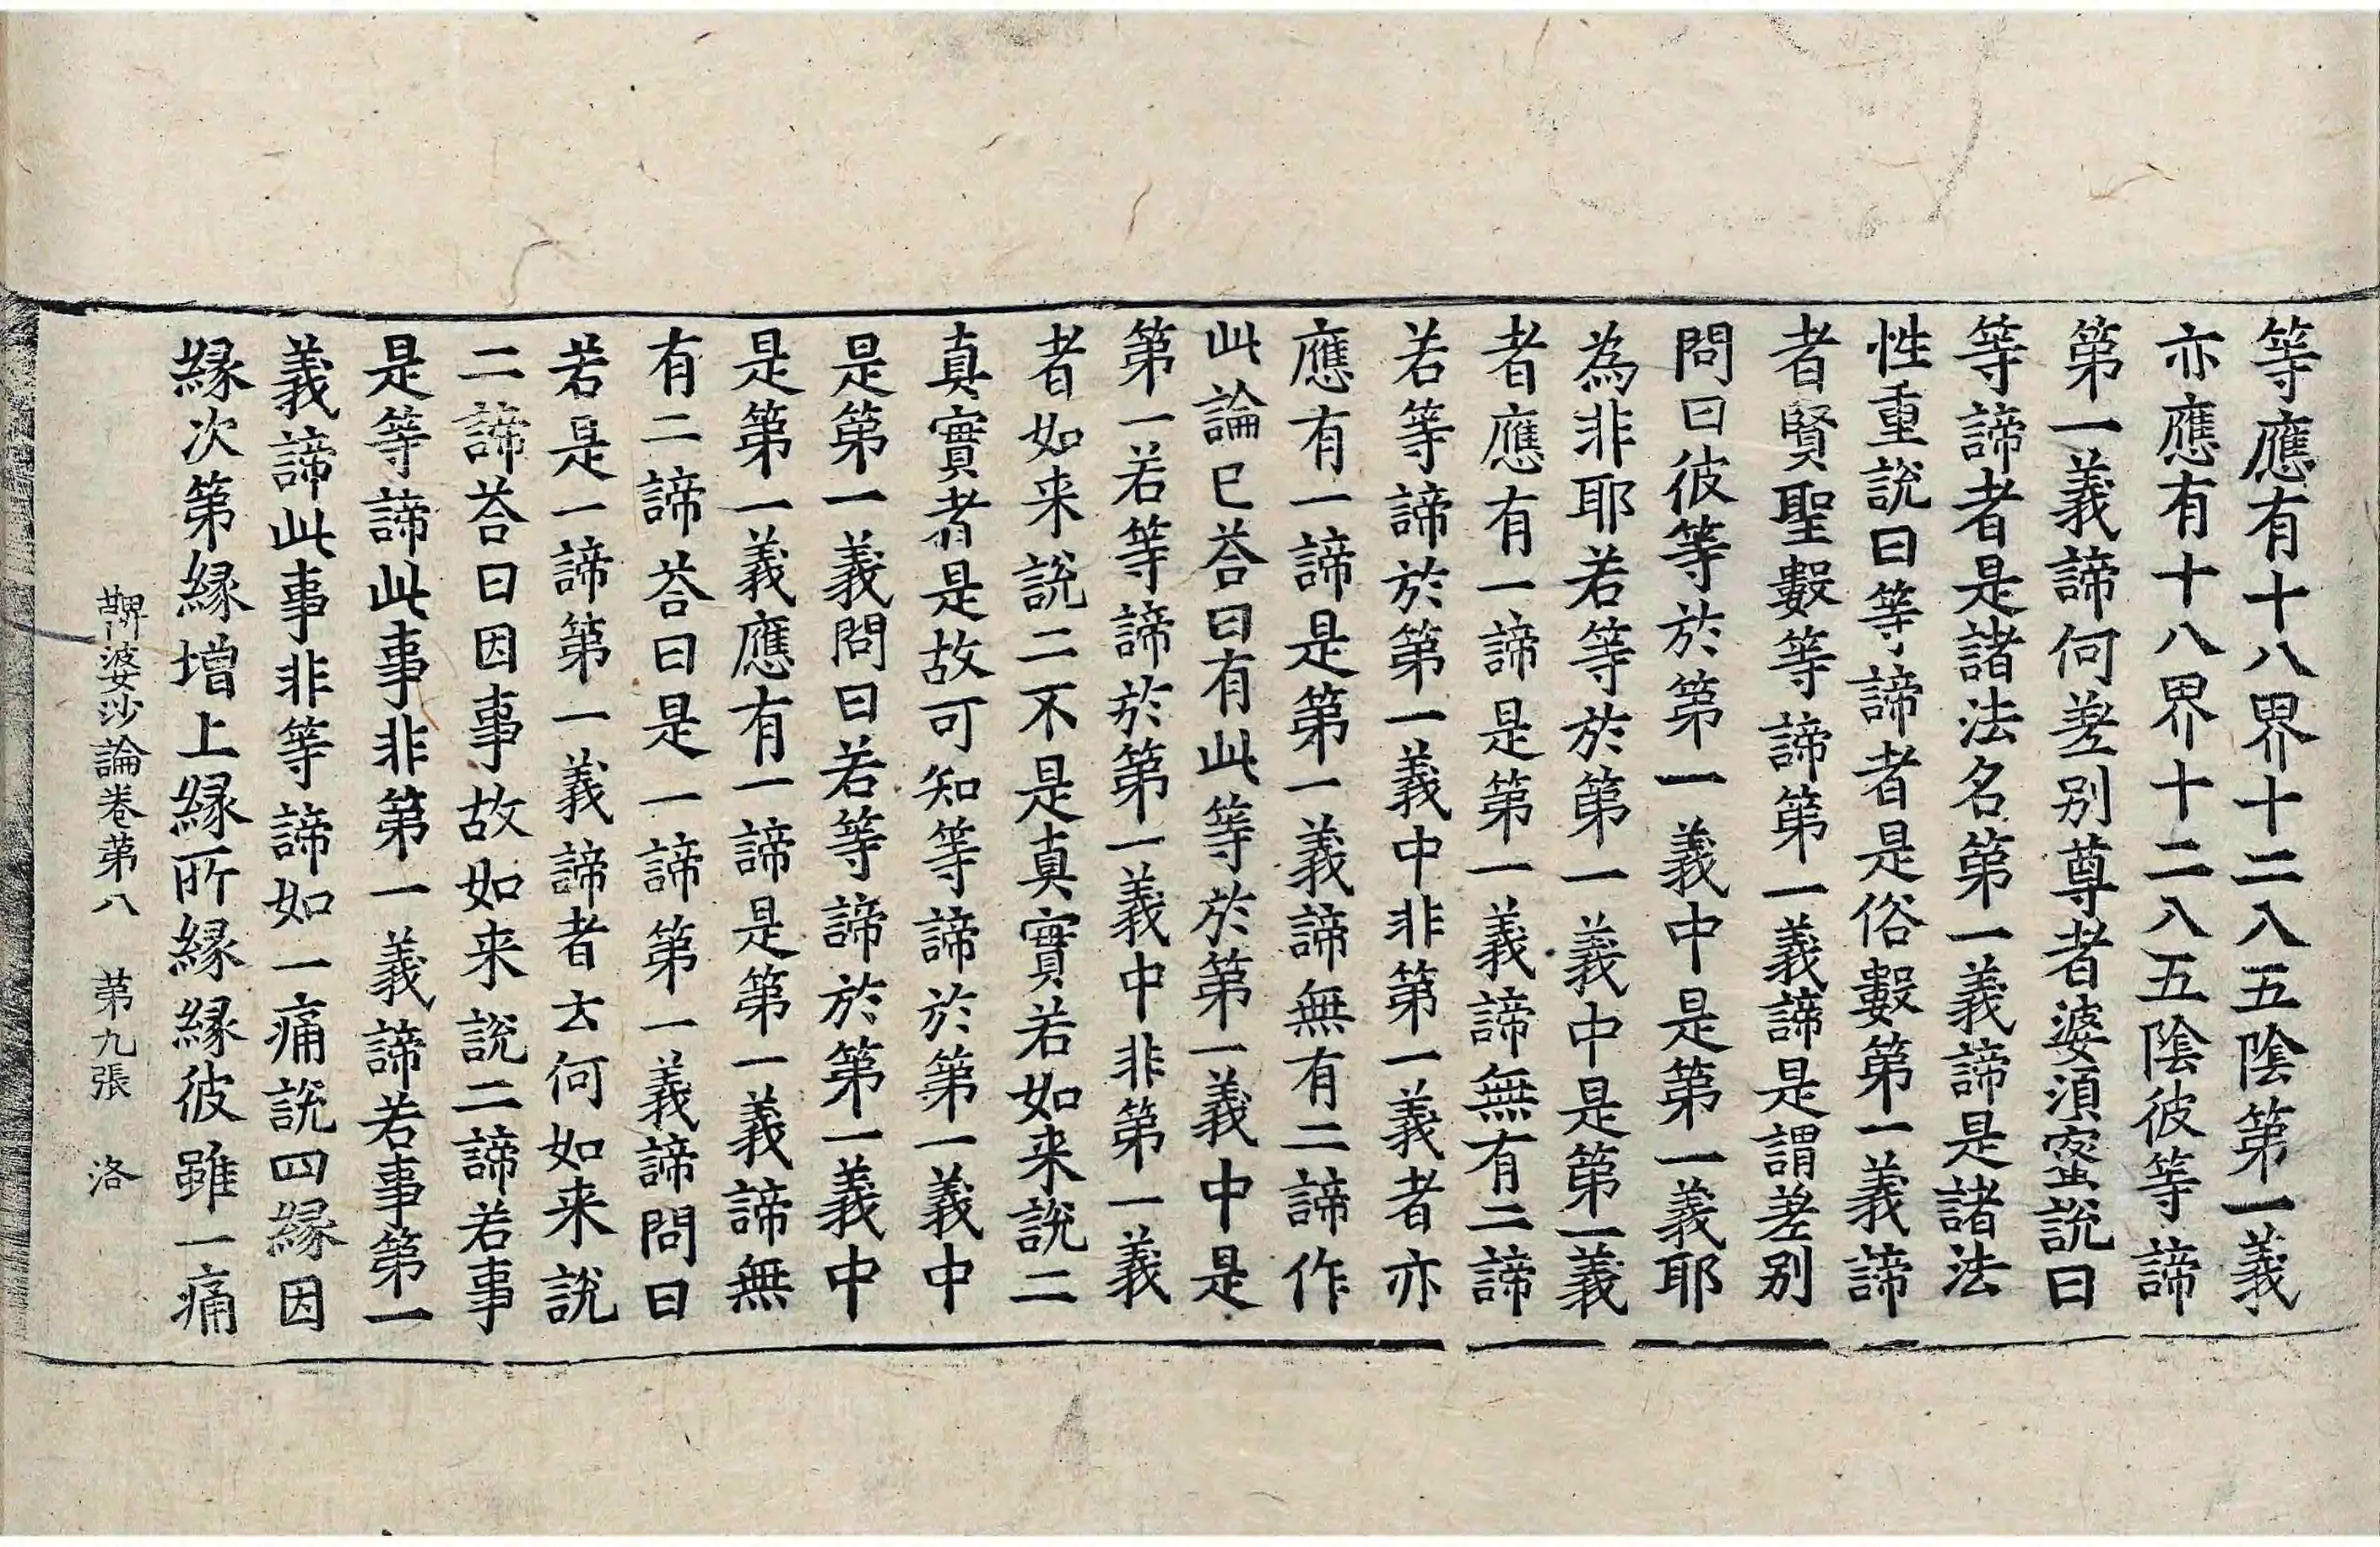 等應有十八界十二入五陰第一義
亦應有十八界十二入五陰彼等諦
第一義諦何差别尊者婆須蜜說曰
等諦者是諸法名第一義諦是諸法
性重說曰等諦者是俗數第一義諦
者賢聖數等諦第一義諦是謂差别
問曰彼等於第一義中是第一義耶
為非耶若等於第一義中是第一義
者應有一諦是第一義諦無有二諦
若等諦於第一義中非第一義者亦
應有一諦是第一義諦無有二諦作
此論已荅曰有此等於第一義中是
第一若等諦於第一義中非第一義
者如来說二不是真實若如来說二
真實者是故可知等諦於第一義中
是第一義問曰若等諦於第一義中
是第一義應有一諦是第一義諦無
有二諦荅曰是一諦第一義諦問曰
若是一諦第一義諦者云何如来說
二諦荅曰因事故如来說二諦若事
是等諦此事非第一義諦若事第一
義諦此事非等諦如一痛說四縁因
縁次第縁增上縁所縁縁彼雖一痛
鞞婆沙論卷苐八　苐九張　洛